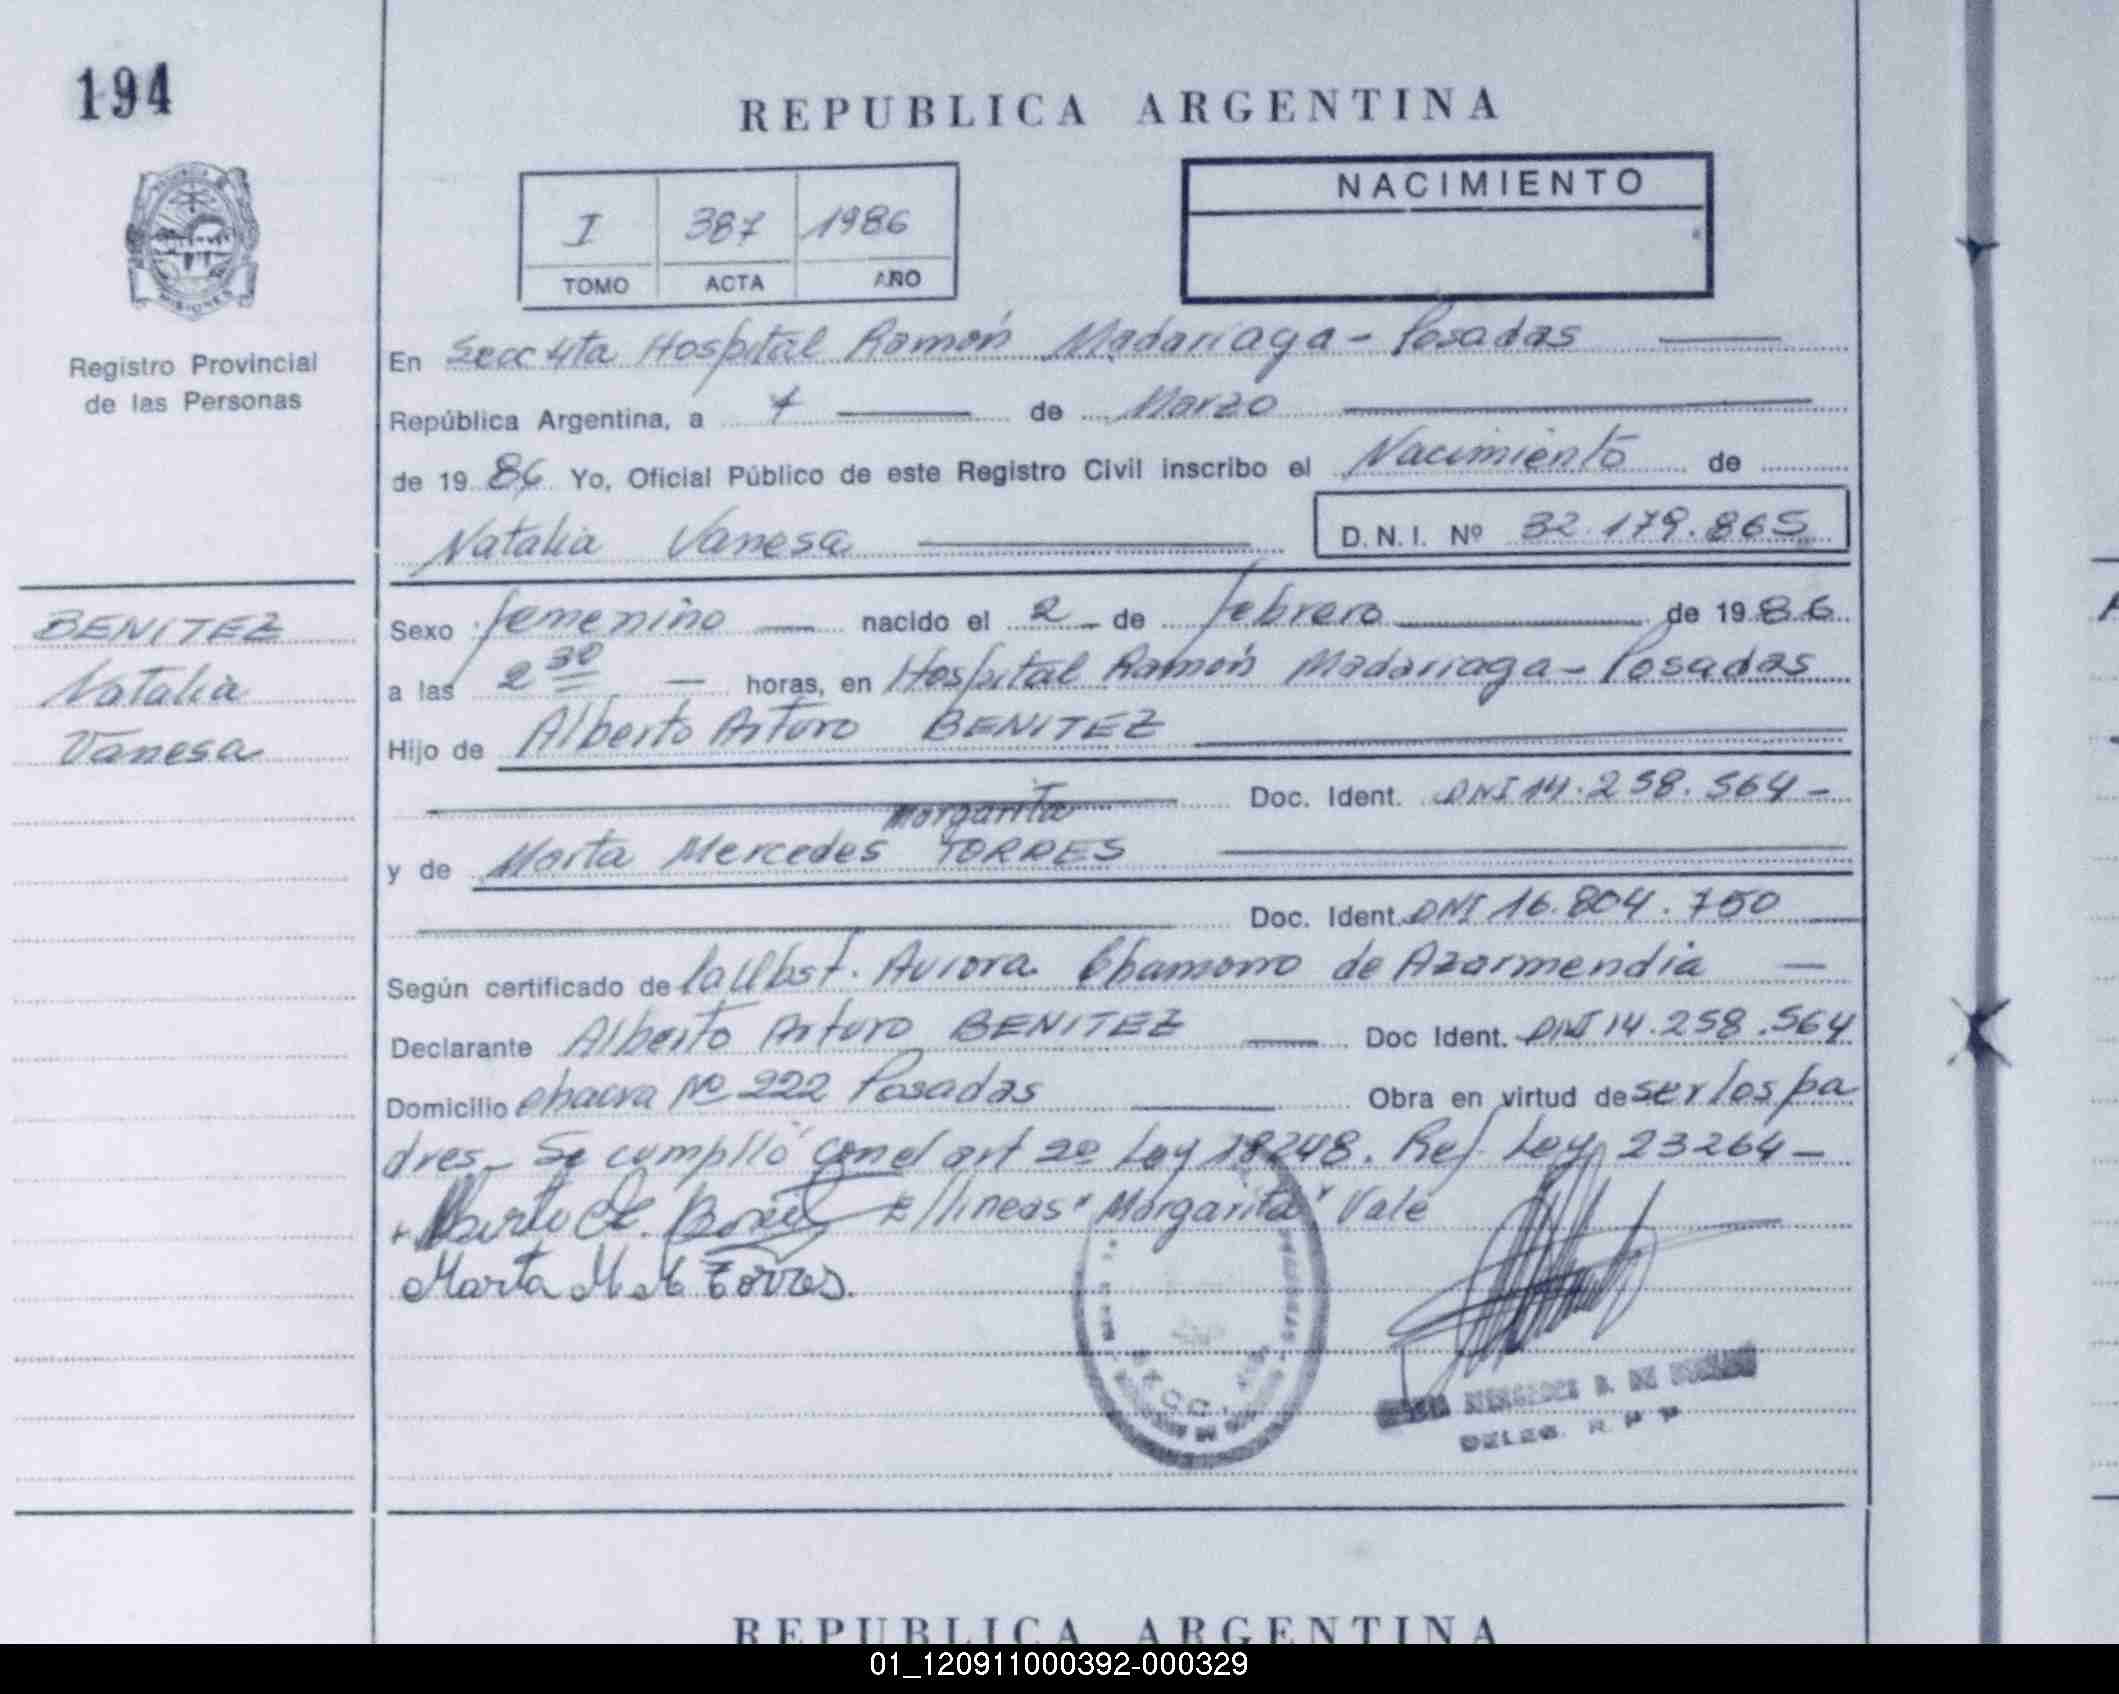 194
REPUBLICA ARGENTINA
NACIMIENTO
I 387 1986
TOMO ACTA AÑO
MISIONES
Registro Provincial
de las Personas
En Secc 4ta Hospital Ramón Madariaga - Posadas
República Argentina, a 7 de Marzo
de 19 86 Yo, Oficial Público de este Registro Civil inscribo el Nacimiento de
Natalia Vanesa D.N.I. Nº 32.179.865
BENITEZ
Natalia
Vanesa
Sexo femenino nacido el 2 - de febrero de 19 86
a las 2 30 horas, en Hospital Ramón Madariaga - Posadas
Hijo de Alberto Arturo BENITEZ
Doc. Ident. DNI 14.258.564 -
Margarita
y de Marta Mercedes TORRES
Doc. Ident. DNI 16.804.750
Según certificado de la Obst. Aurora Chamorro de Azarmendia
Declarante Alberto Arturo BENITEZ Doc Ident. DNI 14.258.564
Domicilio chacra Nº 222 Posadas Obra en virtud de ser los pa
dres - Se cumplió con el art 2º Ley 18248. Ref. Ley 23264 -
E/lineas "Margarita" Vale
Marta M. M. Torres.
SECC.
MERCEDES B. DE
DELEG. R. P. P.
REPUBLICA ARGENTINA
01_120911000392-000329